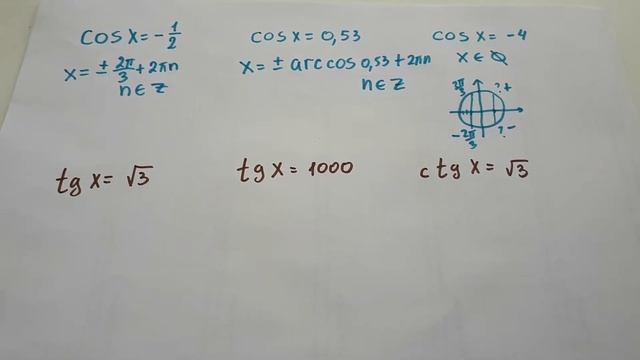 cos x = -1/2
x = ± 2π/3 + 2πn
n ∈ Z
cos x = 0,53
x = ± arccos 0,53 + 2πn
n ∈ Z
cos x = -4
x ∈ ∅
2π/3 ?+
-2π/3 ?-
tg x = √3
tg x = 1000
ctg x = √3